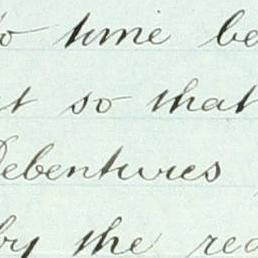 to time be
t so that
Debentures
by the re